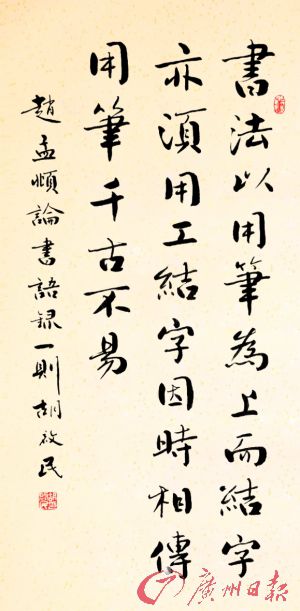 書法以用筆為上而結字
亦須用工結字因時相傳
用筆千古不易
趙孟頫論書語録一則胡民
廣州日報